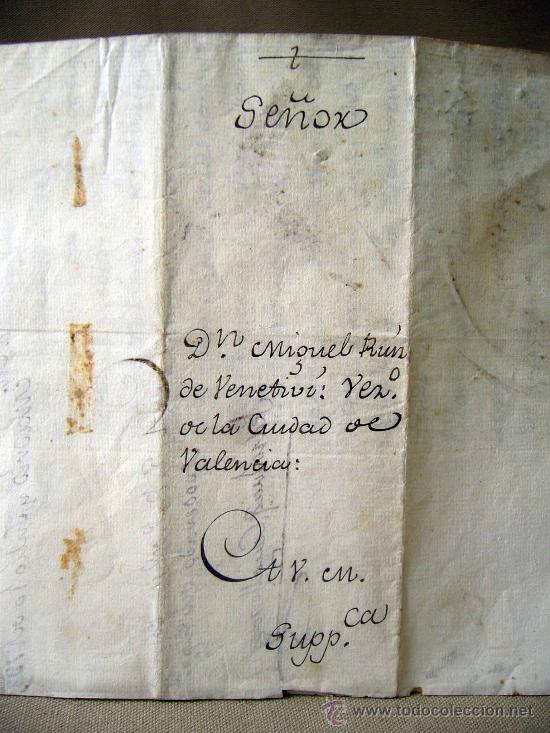 Señor
Dn. Miguel Rún
de Venetiví: Vezo.
de la Cuidad de
Valencia:
A V. M.
Supp.ca
© www.todocoleccion.net